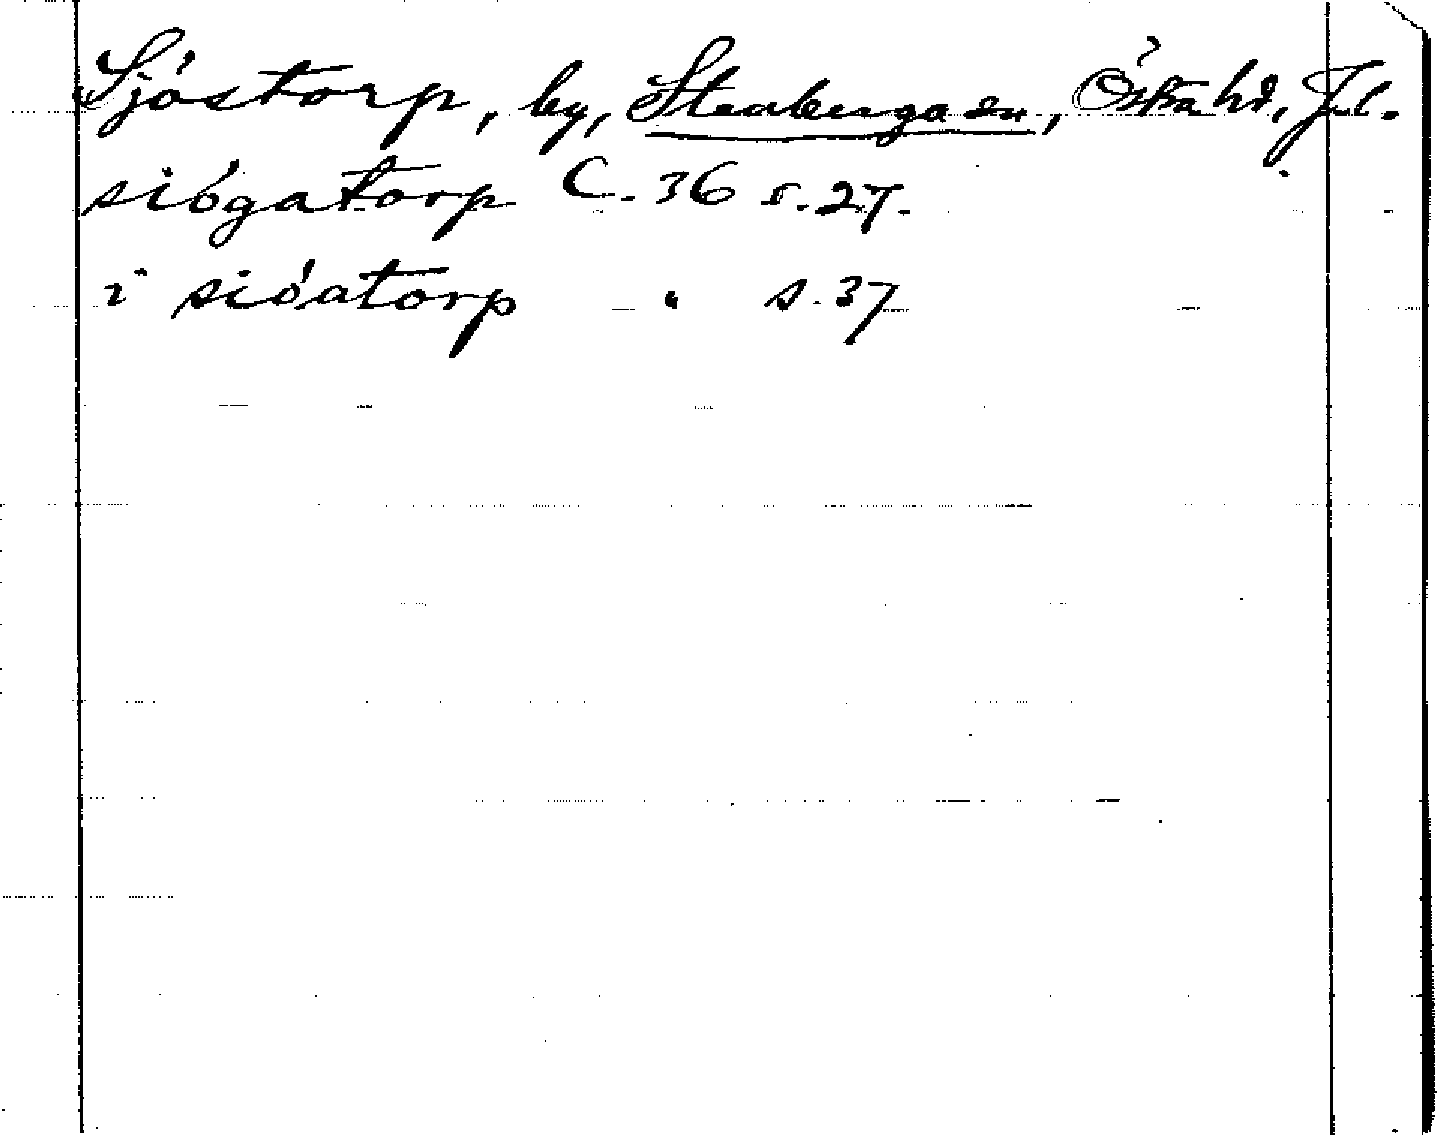 Sjöstorp, by, Stenberga sn, Östra hd, Jkl.
siógatorp C. 36 s. 27.
i sióatorp " s. 37